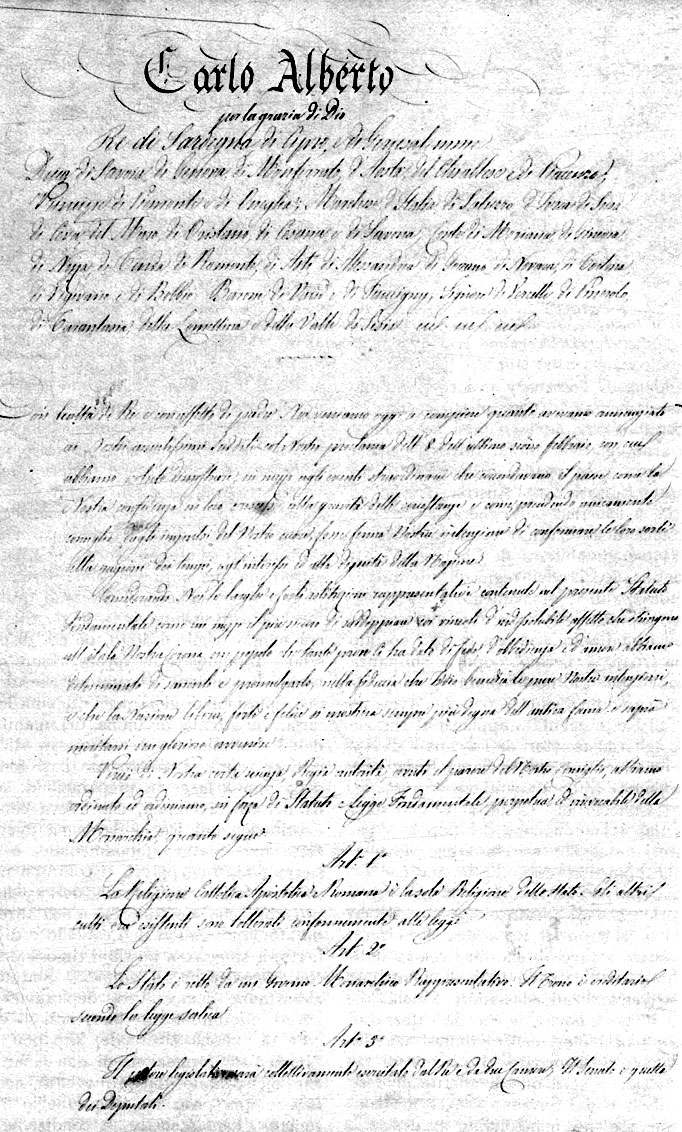 Carlo Alberto
per la grazia di Dio
Re di Sardegna, di Cipro, e di Gerusalemme
Duca di Savoia, di Genova, di Monferrato, d'Aosta, del Chiablese, e di Piacenza;
Principe di Piemonte e di Oneglia; Marchese d'Italia, di Saluzzo, d'Ivrea, di Susa,
di Ceva, del Maro, di Oristano, di Cesana, e di Savona; Conte di Moriana, di Ginevra,
di Nizza, di Tenda, di Romonte, di Asti, di Alessandria, di Goceano, di Novara, di Tortona,
di Vigevano e di Bobbio; Barone di Vaud e di Faucigny; Signore di Vercelli, di Pinerolo,
di Tarantasia, della Lomellina e della Valle di Sesia
on lealtà di Re e con affetto di padre Noi veniamo oggi a compiere quanto avevamo annunziato
ai Nostri amatissimi sudditi col Nostro proclama dell' 8 dell'ultimo scorso febbraio, con cui
abbiamo voluto dimostrare, in mezzo agli eventi straordinarii che circondavano il paese, come la
Nostra confidenza in loro crescesse colla gravità delle circostanze, e come, prendendo unicamente
consiglio dagli impulsi del Nostro cuore, fosse ferma Nostra intenzione di conformare le loro sorti
alla ragione dei tempi, agl'interessi ed alla dignità della Nazione.
Considerando Noi le larghe e forti istituzioni rappresentative contenute nel presente Statuto
fondamentale come un mezzo il più sicuro di raddoppiare coi vincoli d'indissolubile affetto che stringono
all'itala Nostra Corona un popolo, che tante prove Ci ha dato di fede, d'obbedienza e d'amore, abbiamo
determinato di sancirlo e promulgarlo, nella fiducia che Iddio benedirà le pure Nostre intenzioni,
e che la Nazione libera, forte e felice si mostrerà sempre più degna dell'antica fama, e saprà
meritarsi un glorioso avvenire.
Perciò di Nostra certa scienza, Regia autorità, avuto il parere del Nostro Consiglio, abbiamo
ordinato ed ordiniamo, in forza di Statuto e Legge Fondamentale, perpetua ed irrevocabile della
Monarchia, quanto segue:
Art. 1°
La Religione Cattolica, Apostolica e Romana è la sola Religione dello Stato. Gli altri
culti ora esistenti sono tollerati conformemente alle leggi.
Art. 2°
Lo Stato è retto da un Governo Monarchico Rappresentativo. Il Trono è ereditario
secondo la legge salica.
Art. 3°
Il potere legislativo sarà collettivamente esercitato dal Re e da due Camere, Il Senato, e quella
dei Deputati.